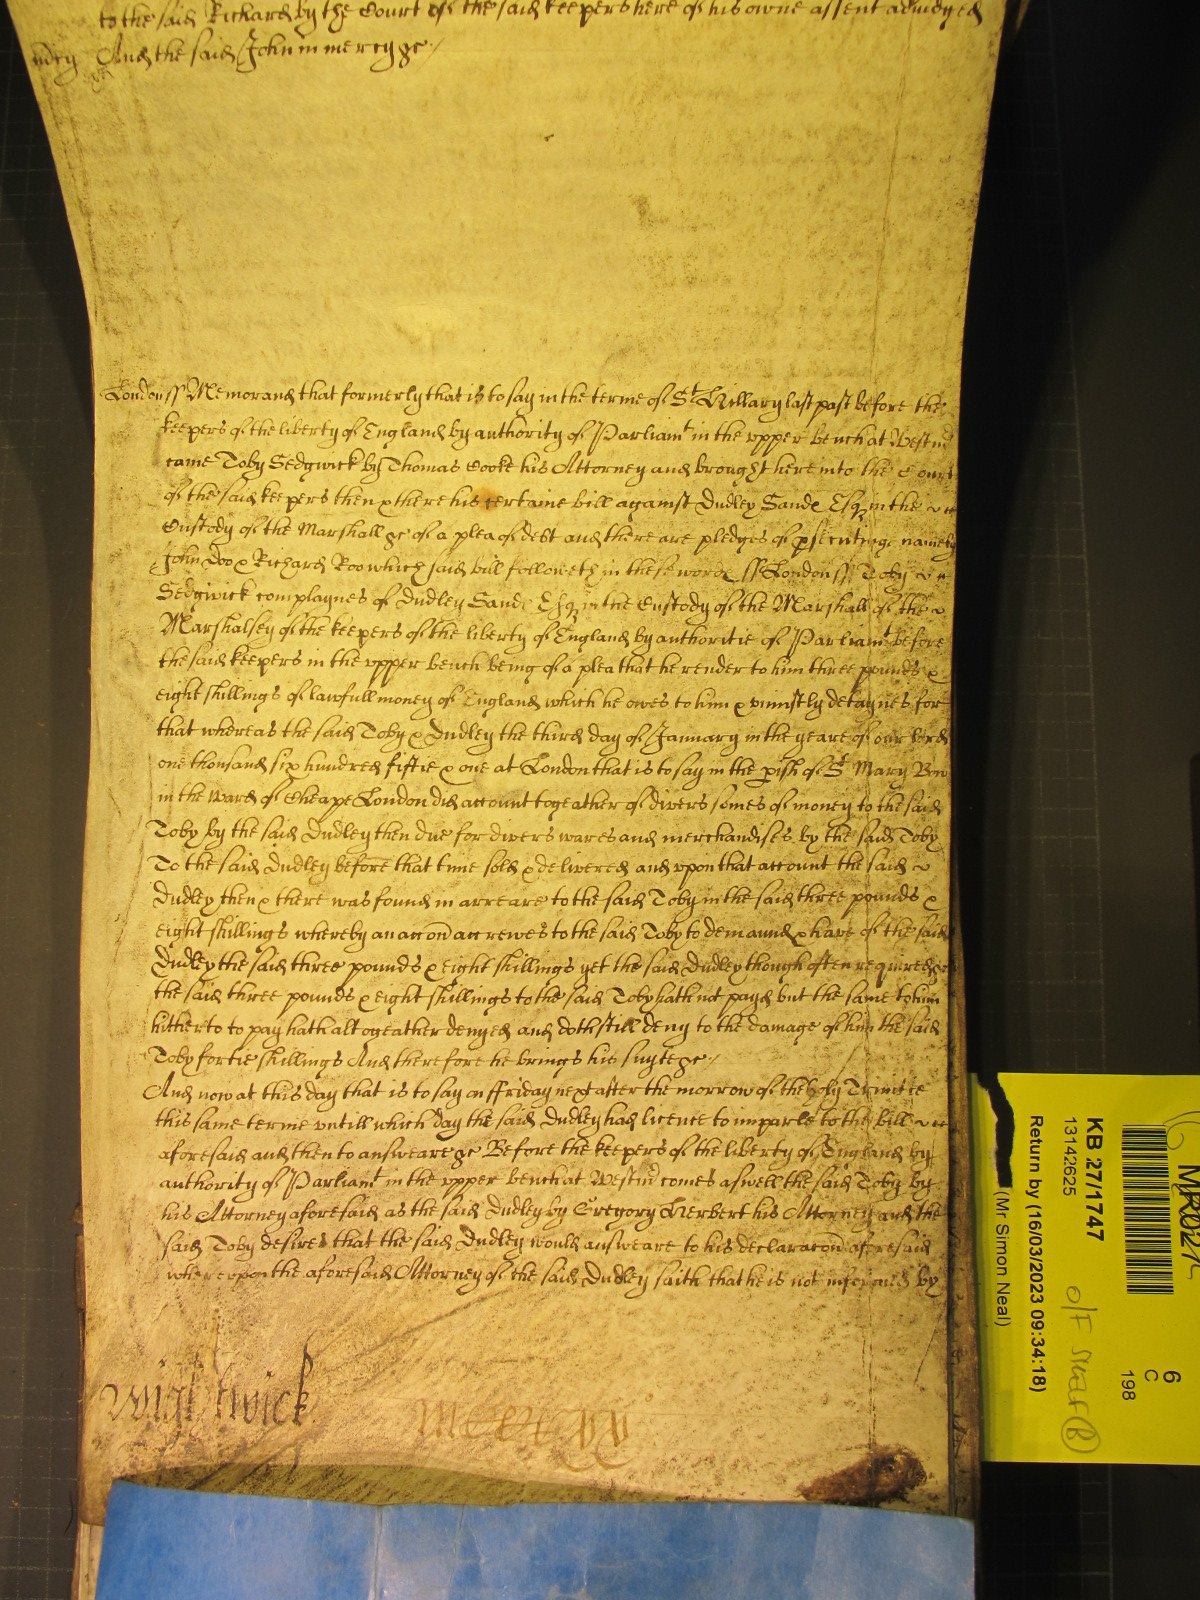 to the said Richard by the Court of the said keepers here of his owne assent adiudged
And the said John in mercy &c
London ss Memorand that formerly that is to say in the terme of St Hillary last past before the
keepers of the liberty of England by authority of Parliamt in the vpper bench at Westm
came Toby Sedgwick by Thomas Cooke his Attorney and brought here into the Court
of the said keepers then & there his certaine bill against Dudley Sands Esq in the
Custody of the Marshall &c of a plea of debt and there are pledges of psecuting namely
John Doo & Richard Roo which said bill followeth in these words ss London ss Toby
Sedgwick complaynes of Dudley Sands Esq in the Custody of the Marshall of the
Marshalsey of the keepers of the liberty of England by authoritie of Parliamt before
the said keepers in the vpper bench being of a plea that he render to him three pounds &
eight shillings of lawfull money of England which he owes to him & vniustly detaynes for
that whereas the said Toby & Dudley the third day of January in the yeare of our lord
one thousand six hundred fiftie & one at London that is to say in the pish of St Mary Bow
in the ward of Cheape London did account togeather of divers somes of money to the said
Toby by the said Dudley then due for divers wares and merchandises by the said Toby
To the said Dudley before that time sold & delivered and vpon that account the said
Dudley then & there was found in arreare to the said Toby in the said three pounds &
eight shillings whereby an accon accrewes to the said Toby to demaund & have of the said
Dudley the said three pounds & eight shillings yet the said Dudley though often required &c
the said three pounds & eight shillings to the said Toby hath not payd but the same to him
hitherto to pay hath altogeather denyed and doth still deny to the damage of him the said
Toby fortie shillings And therefore he brings his suyte &c
And now at this day that is to say on ffriday next after the morrow of the holy Trinitie
this same terme vntill which day the said Dudley had licence to imparle to the bill
aforesaid and then to answeare &c Before the keepers of the liberty of England by
authority of Parliamt in the vpper bench at Westm comes aswell the said Toby by
his Attorney aforesaid as the said Dudley by Gregory Herbert his Attorney and the
said Toby desires that the said Dudley would answeare to his declaracon aforesaid
wherevpon the aforesaid Attorney of the said Dudley saith that he is not informed by
Wightwick
KB 27/1747
13142625
Return by (16/03/2023 09:34:18)
(Mr Simon Neal)
6
C
198